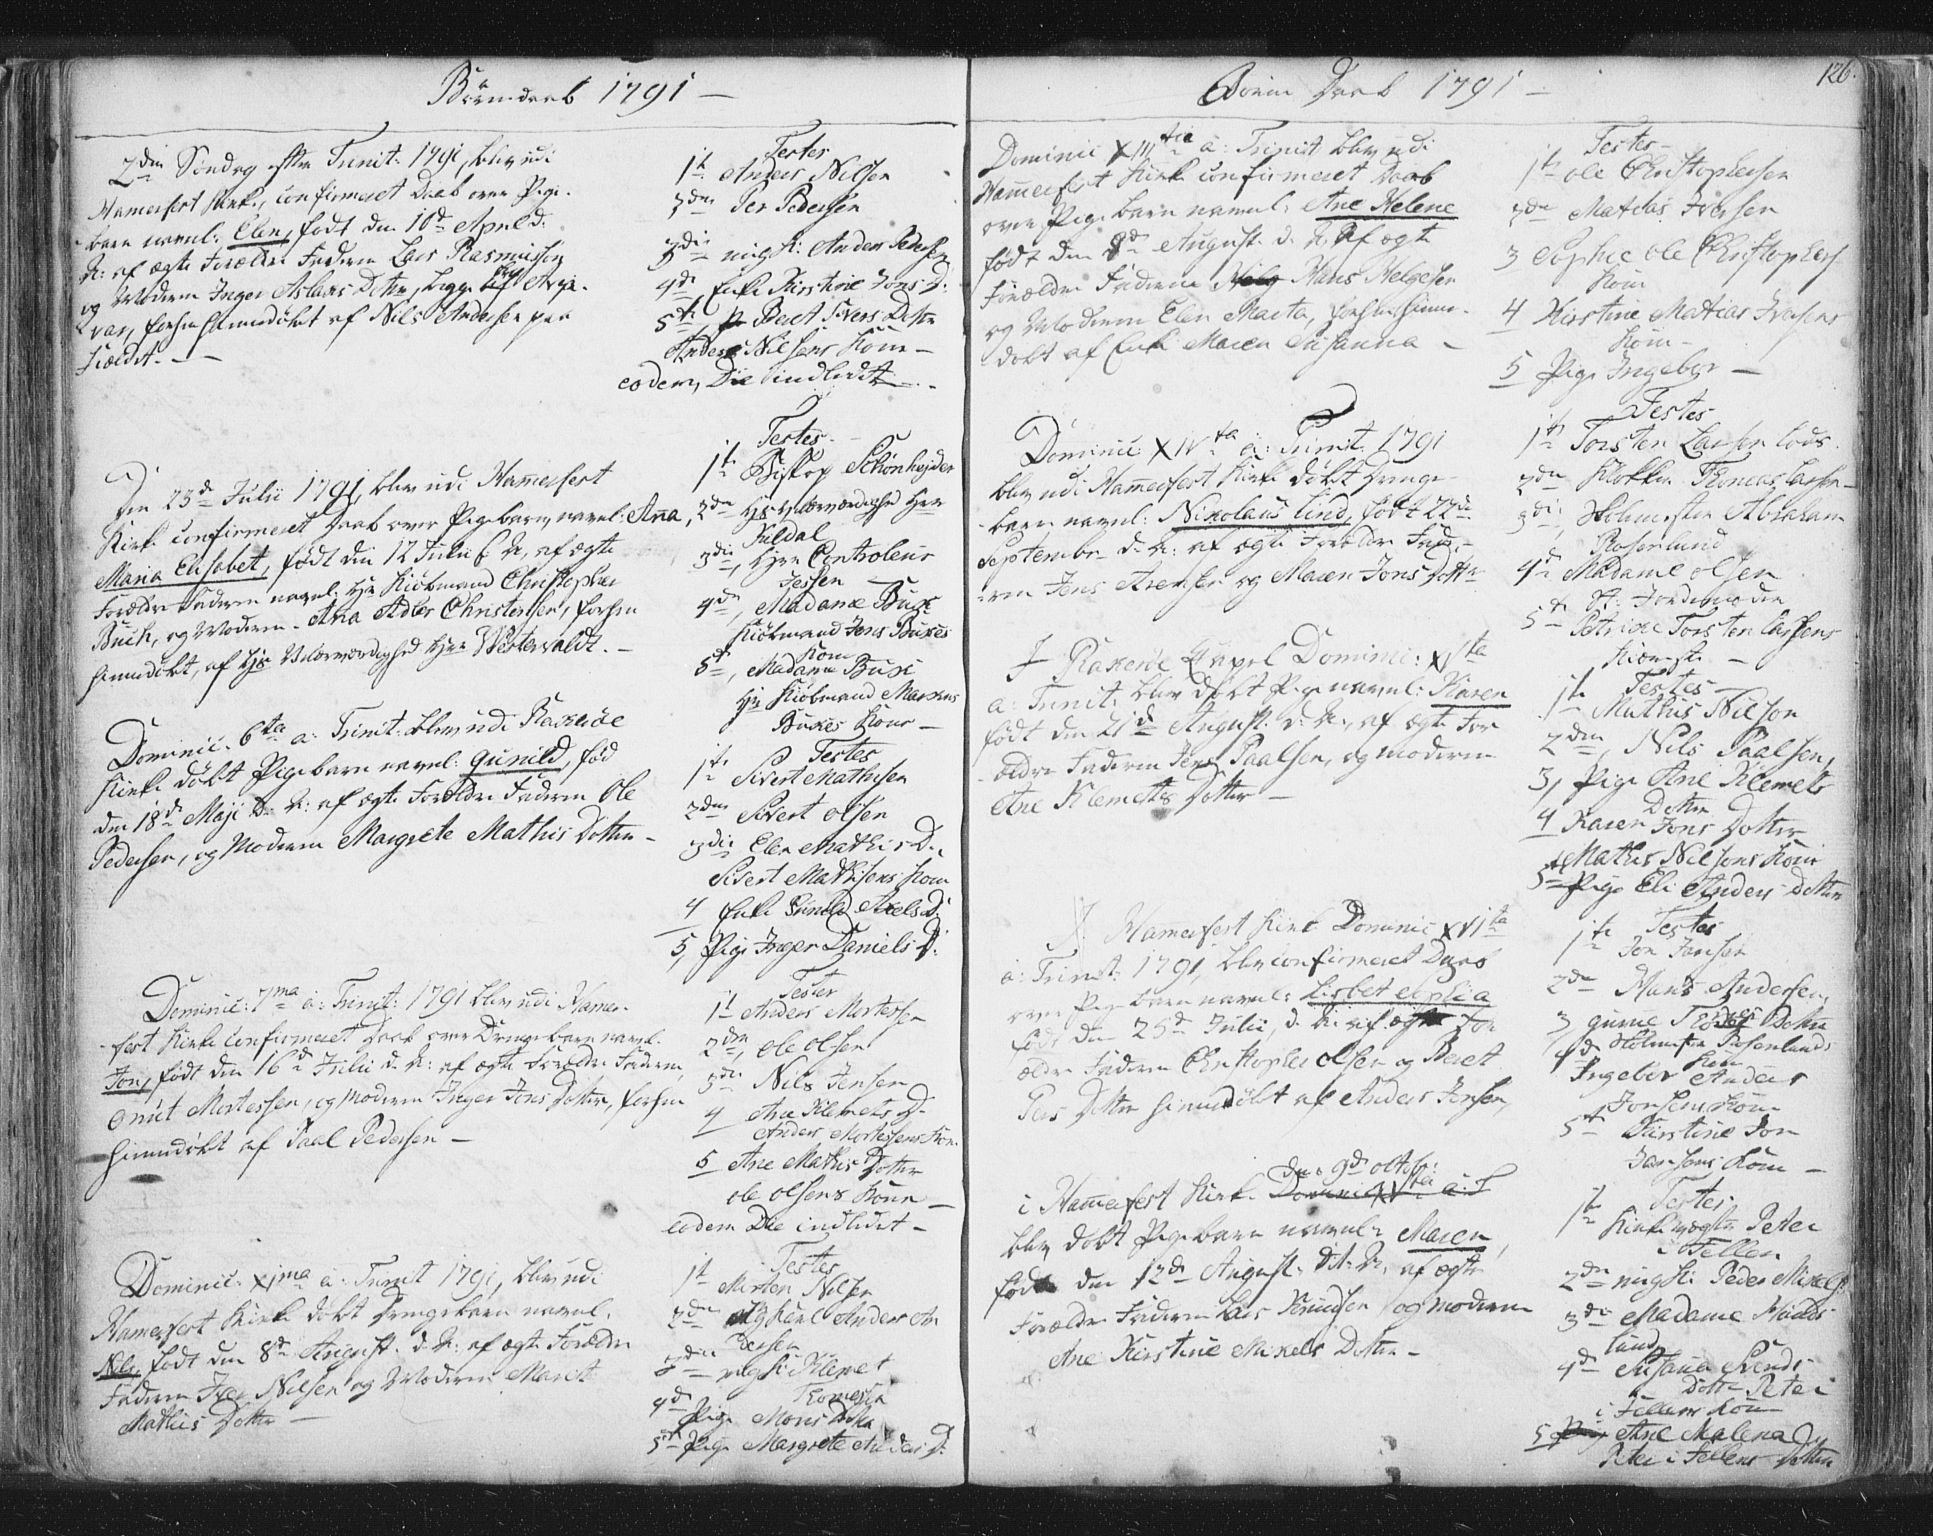 Börnedaab 1791 —
2den Söndag efter Trinit: 1791, blev udi
Hamerfest Kirke, confirmeret Daab over Pige-
barn navnl: Elen, födt den 10de April d:
A: af ægte Forældre Faderen Lars Rasmussen
og Moderen Inger Aslaks Datter, begge af
var, forhen hiemmedöbt af Nils Andersen paa
Fieldet. —
Testes
1te Anders Nilsen
2den Per Pedersen
3die ungk: Anders Pedersen
4de Enke Kirstine Jons D:
5te Beret Sivers Datter
Anders Nilsens Kone —
eodem, Die indledet —
Den 23de Julii 1791, blev udi Hamerfest
Kirke confirmeret Daab over Pigebarn, navnl: Ana,
Maria Elisabet, födt den 12 Julii d: A:, af ægte
Forældre Faderen navnl: Hr Kiöbmand Christopher
Buck, og Moderen - Ana Adler Christensen, forhen
hiemmedöbt, af Hr Velærværdighed Herr Westervaldt. —
Testes. —
1te Biskop Schönheyder
2den Hs Velærværdighed Herr
Juldal
3die, Herr Controleur
Jessen
4de, Madame Buck
Kiöbmand Jens Buckes
Kone
5te, Madame Buck
Hr Kiöbmand Markus
Buckes Kone —
Dominic: 6ta a: Trinit: blev udi
Kirke döbt Pigebarn navnl: Gunild, föd
den 18de Maji d: A: af ægte Forældre Faderen Ole
Pedersen, og Moderen Margrete Mathis Datter —
Testes
1te Sivert Mathisen
2den Sivert Olsen
3die Elen Mathis D:
Sivert Mathisens Kone
4 Enke Gunild Axels D:
5, Pige Inger Daniels D:
Dominic: 7ma a: Trinit: 1791 blev udi Hamer-
fest Kirke confirmeret Daab over Drengebarn navnl:
Jon, födt den 16de Julii d: A: af ægte Forældre Faderen,
Gnut Mortessen, og Moderen Inger Jons Datter, forhen
hiemmedöbt af Paal Pedersen —
Testes
1te Anders Mortesen
2den, Ole Olsen
3die Nils Jensen
4 Ane Klemets D:
Anders Mortessens Kone
5 Ane Mathis Datter
Ole Olsens Kone —
eodem Die indledet —
Dominic: XIma a: Trinit 1791, blev udi
Hamerfest Kirke döbt Drengebarn navnl:
Nils, födt den 8de August: d: A: af ægte Forældre
Faderen Iver Nilsen og Moderen Marit
Mathis Datter —
Testes
1te Morten Nilsen
2den ungkarl Anders An
dersen
3die ungk: Klemet
Thomessen
4de Pige Mons Datter
5te Pige Margrete Anders D:
Börne Daab 1791 —
126.
Dominic XIIItia a: Trinit blev udi
Hamerfest Kirke confirmeret Daab
over Pigebarn navnl: Ane Helene
födt den 8de August. d: A: af ægte
Forældre Faderen Hans Helgesen
og Moderen Elen Marta, forhen hiemme-
döbt af Enke Maren Susanna —
Testes —
1te Ole Christophersen
2den Mathias Iversen
3 Sophie Ole Christophers
Kone
4 Kirstine Matias Iversens
Kone —
5 Pige Ingebor —
Dominic XIVta a: Trinit 1791
blev udi Hamerfest Kirke döbt Drenge-
barn navnl: Nikolaus Lind, födt 22de
Septembr d: A: af ægte Forældre Fade-
ren Jens Arensen og Maren Jons Datter
Testes
1te Torsten Larsen Lods
2den Klokker Thomas Larsen
3die, Skolmester Abraham
Rosenlund
4de Madame Olsen
St: Jordemoder
5te Petrike Torsten Larsens
Kiereste —
I Capel Dominic: XVta
a: Trinit: blev döbt Pige navnl: Karen
födt den 21de August: d: A:, af ægte For
ældre Faderen Jens Paalsen, og moderen
Ane Klemets Datter —
Testes —
1te Mathis Nilson
2den, Nils Paalsen,
3, Pige Ane Klemets
Datter
4 Karen Jons Datter
Mathis Nilsens Kone
5te Pige Eli Anders Datter
I Hamerfest Kirke Dominic XVIta
a: Trinit: 1791, blev confirmeret Daab
over Pigebarn navnl: Lisbet
födt den 25de Julii, d: A: af ægte For
ældre Faderen Christopher Olsen og Beret
Pers Datter hiemmedöbt af Anders Jensen,
Testes
1te Jon Jansen
2den Hans Andersen,
3, Gurie Datter
Skolmester Rosenlunds
Kone
4de Ingebor Anders
Jonsens Kone
5te Kirstine Jon
Jansens Kone —
den 9de Octobr:
i Hamerfest Kirke Dominic XVta a: T
blev döbt Pigebarn navnl: Maren,
födt den 12de August: d: A:, af ægte
Forældre Faderen Lars Knudsen og Moderen
Ane Kirstine Mikels Datter —
Testes
1te Kirkeværger Peter
i Fellen
2den ungk: Peder Mikels:
3die Madame
lund
4de Susana Svends
Datter Peter i
Fellens Kone
5 Pige Ane Malena
Peter i Fellens Datter